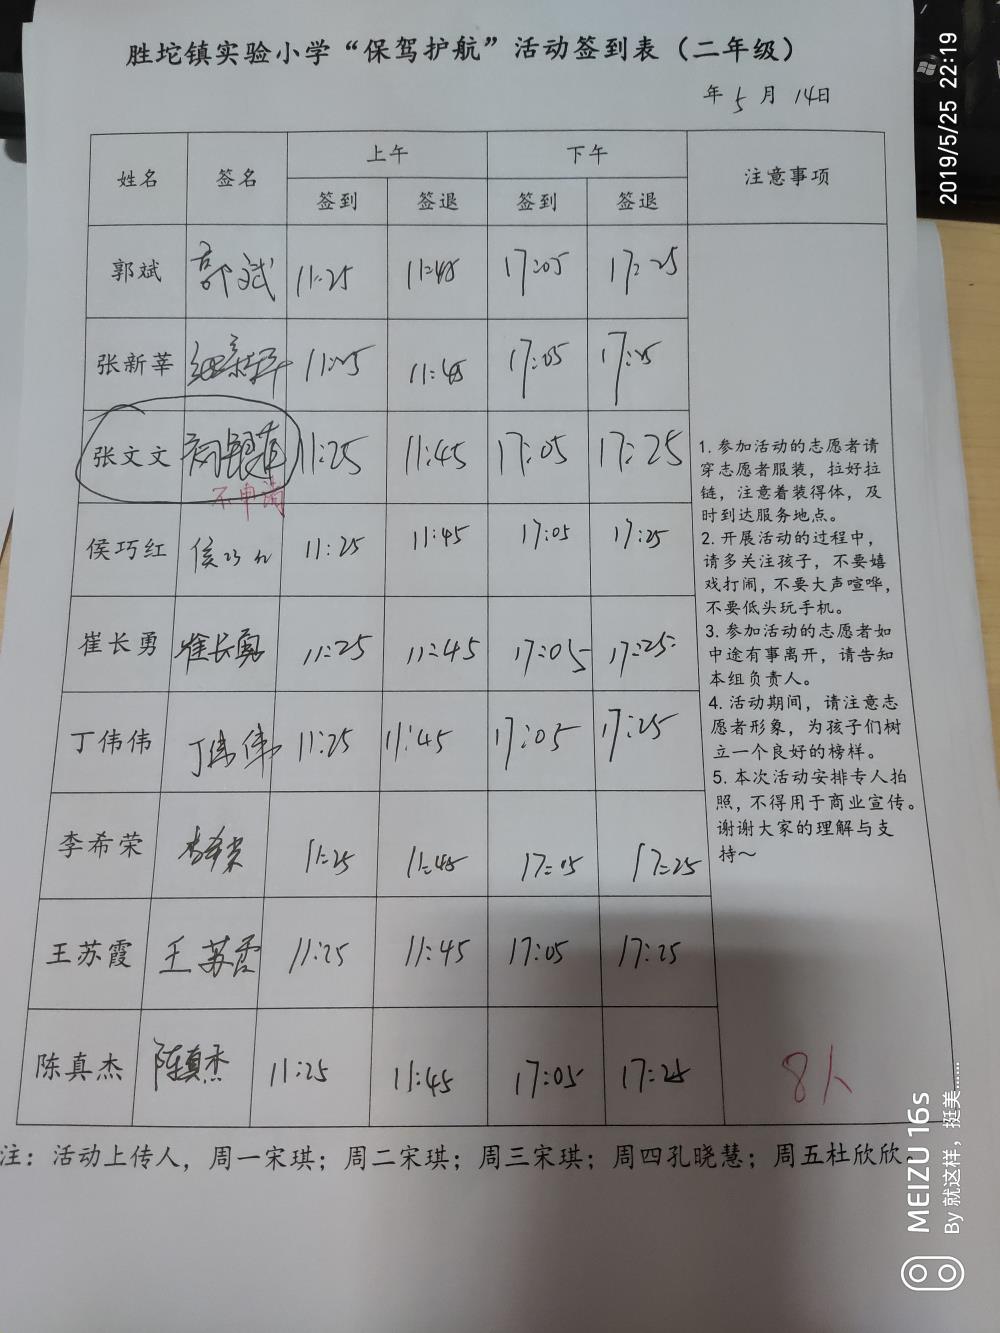 胜坨镇实验小学“保驾护航”活动签到表（二年级）
年 5 月 14日
姓名 签名 上午 下午 注意事项
签到 签退 签到 签退
郭斌 郭斌 11:25 11:45 17:05 17:25
张新莘 11:25 11:45 17:05 17:25
张文文 11:25 11:45 17:05 17:25
不申请
侯巧红 侯巧红 11:25 11:45 17:05 17:25
崔长勇 崔长勇 11:25 11:45 17:05 17:25
丁伟伟 丁伟伟 11:25 11:45 17:05 17:25
李希荣 李希荣 11:25 11:45 17:05 17:25
王苏霞 王苏霞 11:25 11:45 17:05 17:25
陈真杰 陈真杰 11:25 11:45 17:05 17:25
1. 参加活动的志愿者请
穿志愿者服装，拉好拉
链，注意着装得体，及
时到达服务地点。
2. 开展活动的过程中，
请多关注孩子，不要嬉
戏打闹，不要大声喧哗，
不要低头玩手机。
3. 参加活动的志愿者如
中途有事离开，请告知
本组负责人。
4. 活动期间，请注意志
愿者形象，为孩子们树
立一个良好的榜样。
5. 本次活动安排专人拍
照，不得用于商业宣传。
谢谢大家的理解与支
持～
8人
注：活动上传人，周一宋琪；周二宋琪；周三宋琪；周四孔晓慧；周五杜欣欣。
2019/5/25 22:19
MEIZU 16s
By 就这样，挺美……